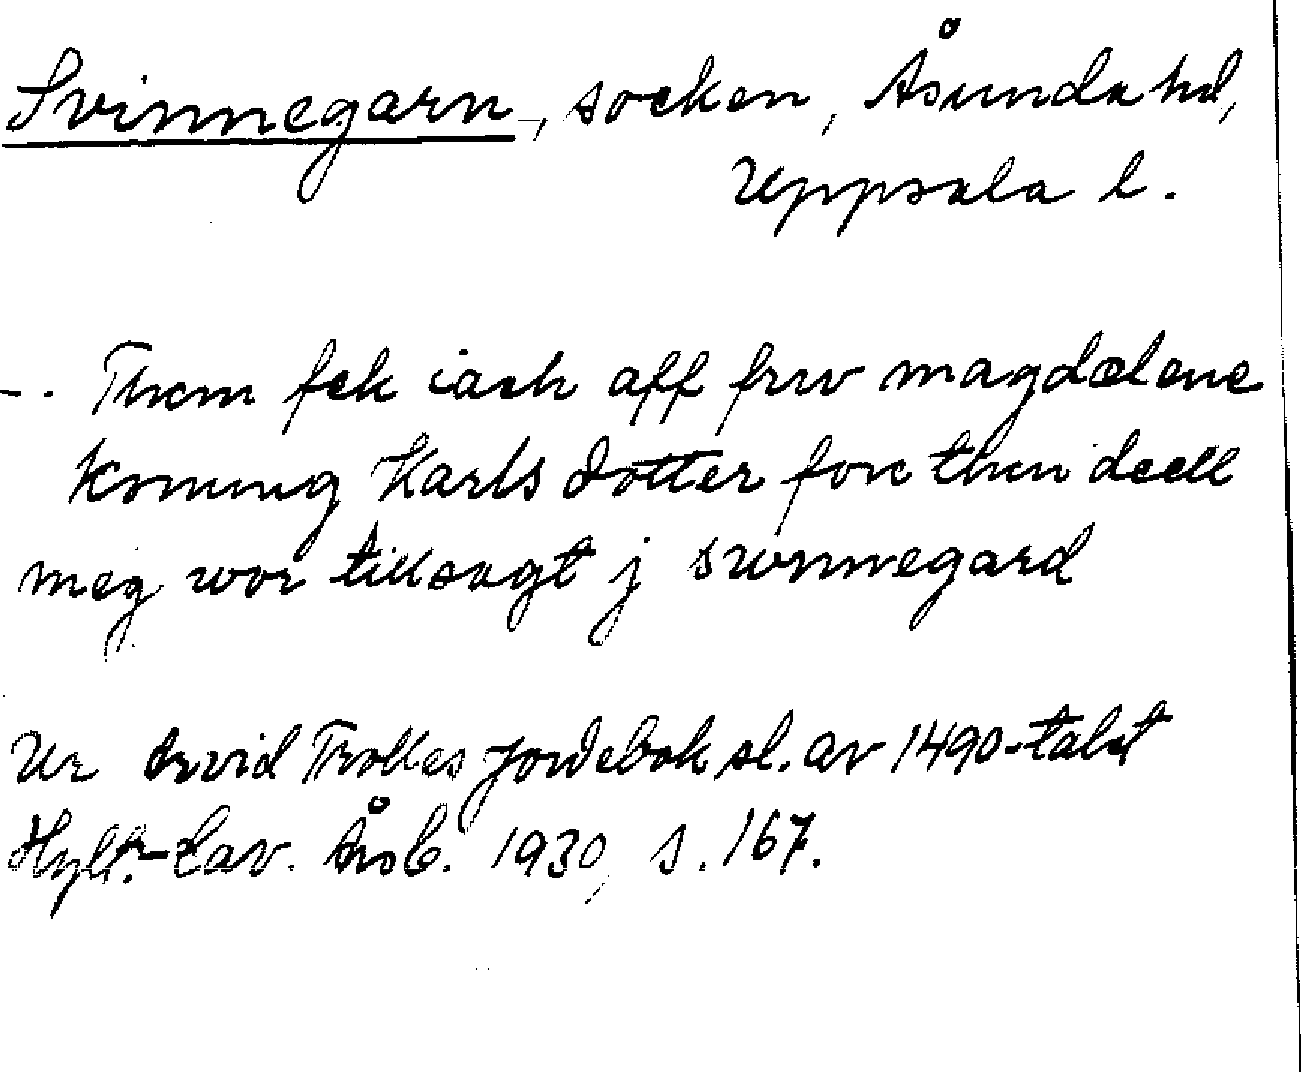 Svinnegarn, socken, Åsunda hd,
Uppsala l.
-. Them fek iach aff frw magdælene
konung Karls dotter fore then deell
meg wor tillsagt j swnnegard
Ur Arvid Trolles jordebok sl. av 1490-talet
Hylt.-Cav. Årsb. 1930, s. 167.